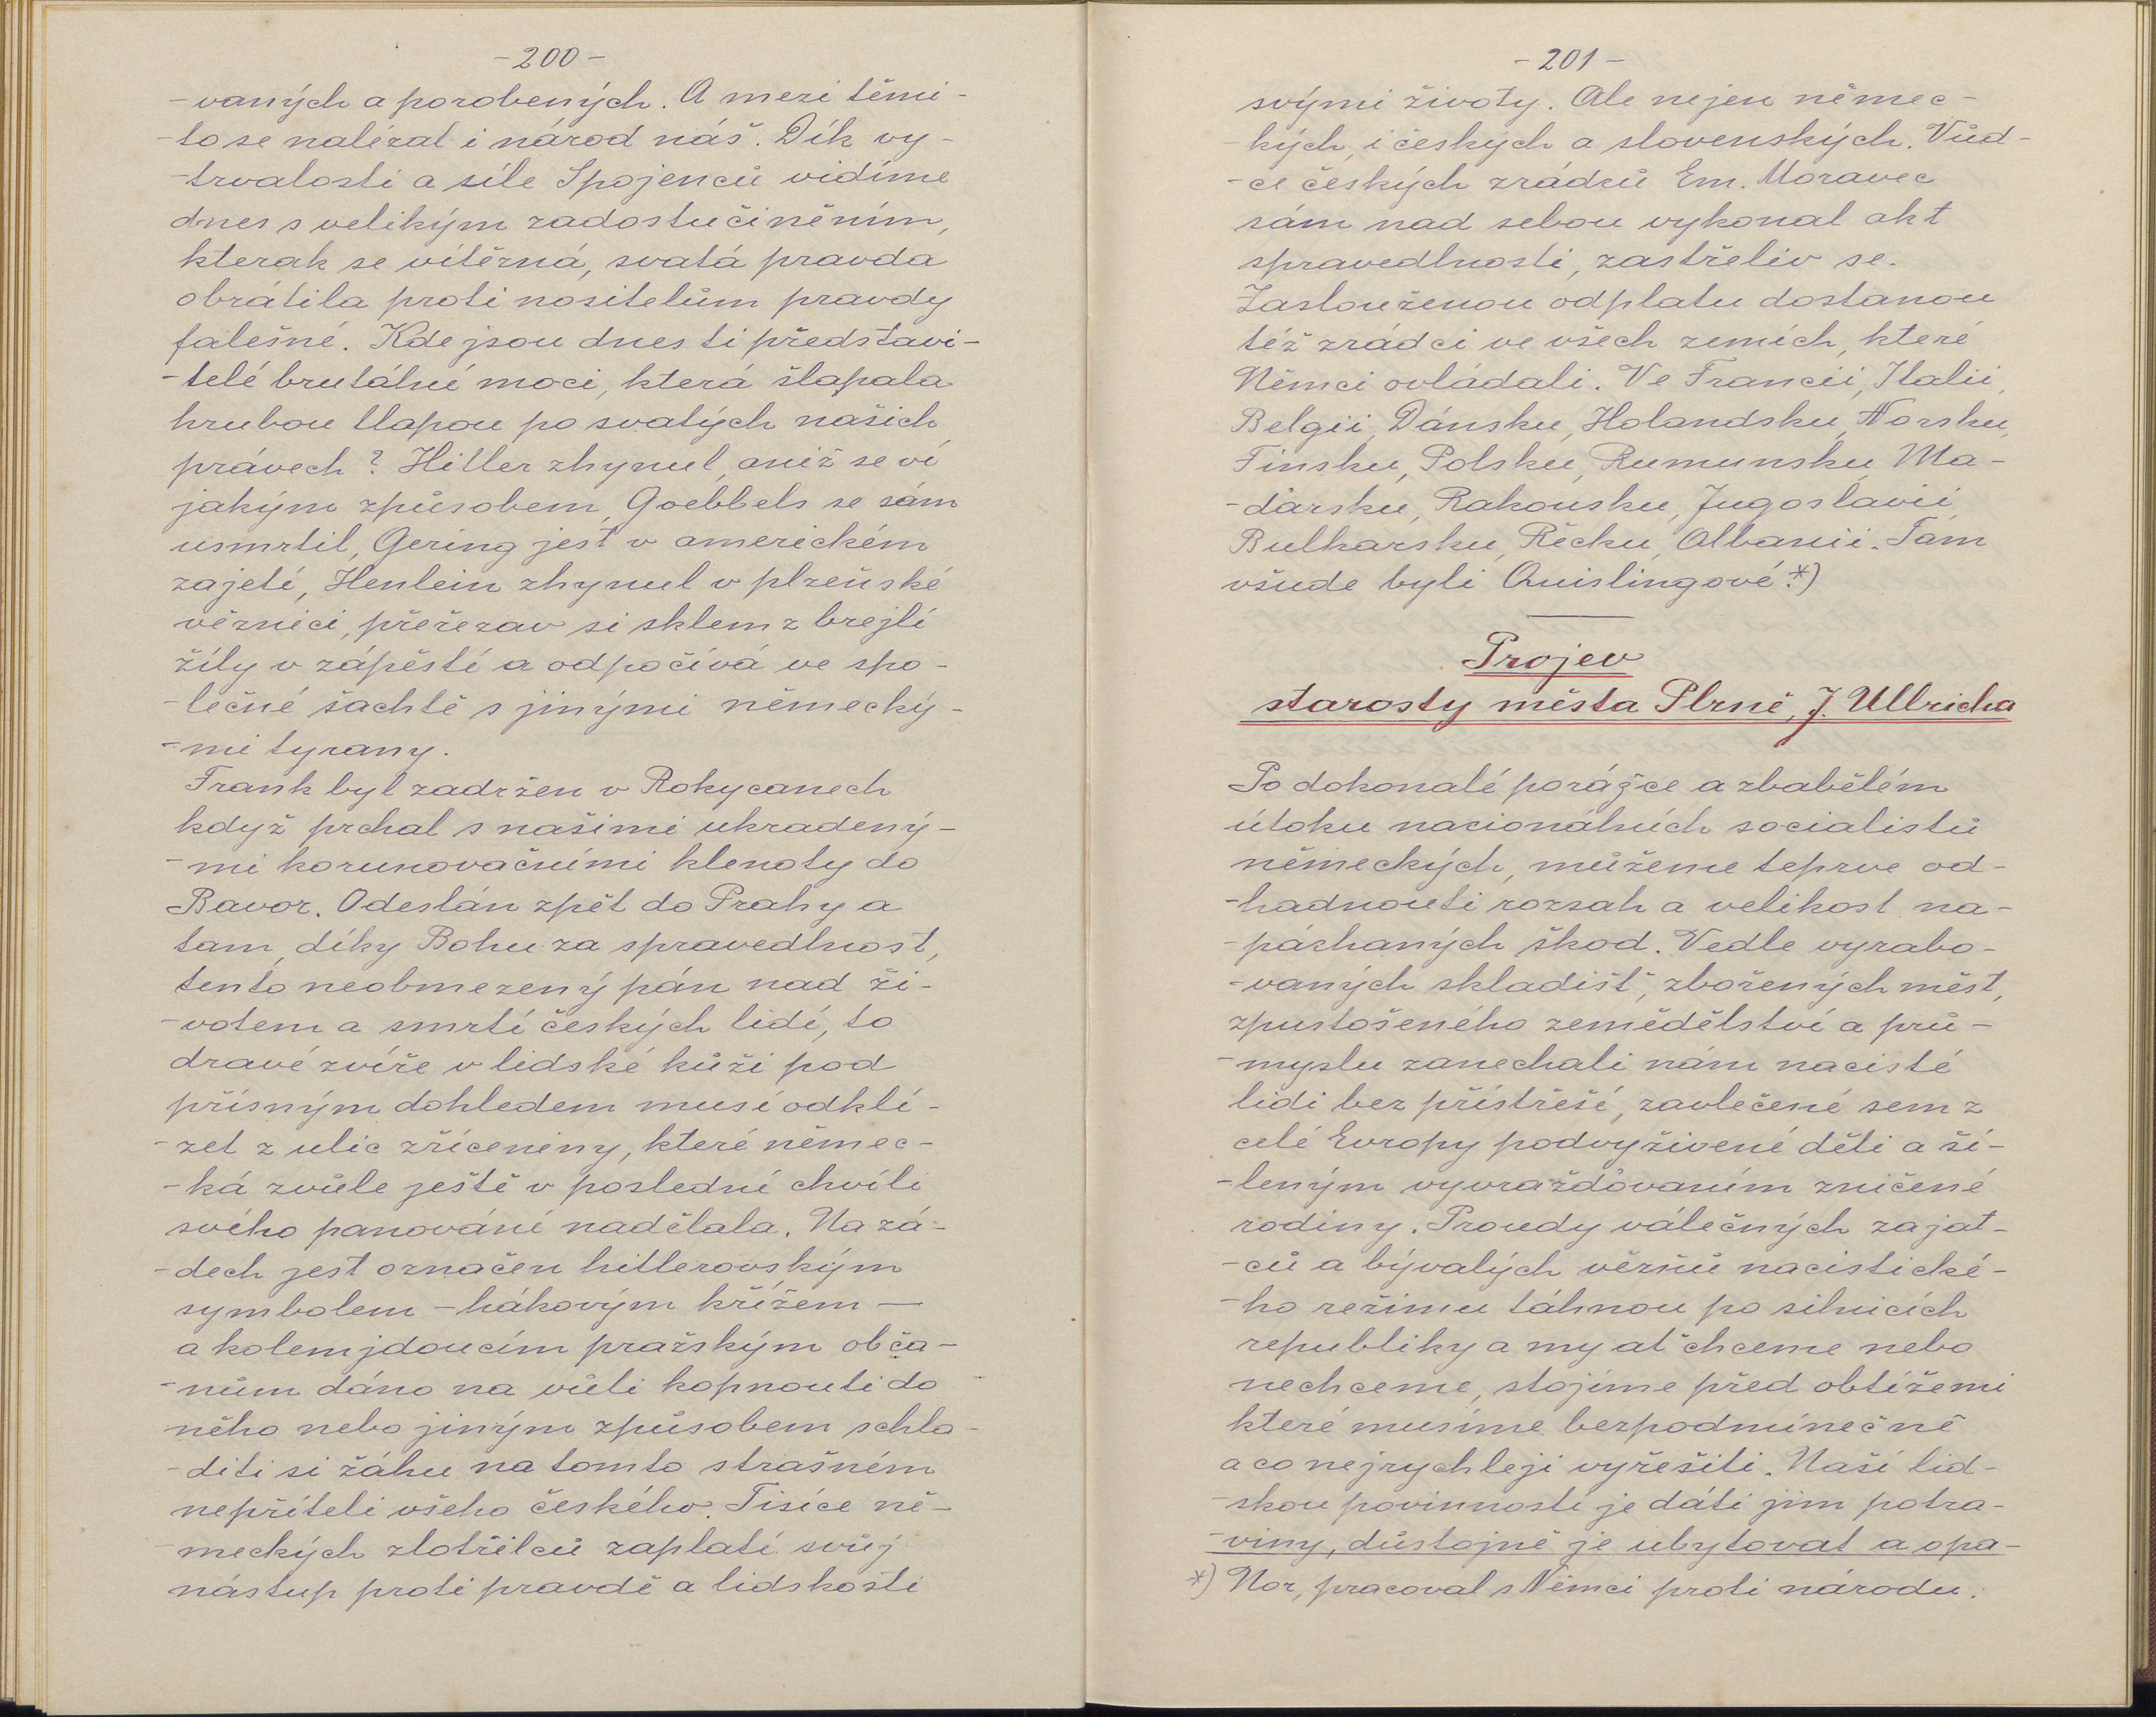 -200-
-vaných a porobených. A mezi těmi-
-to se nalézal i národ náš. Dík vy-
-trvalosti a síle Spojenců vidíme
dnes s velikým zadostučiněním,
kterak se vítězná, svatá pravda
obrátila proti nositelům pravdy
falešné. Kde jsou dnes ti představi-
-telé brutální moci, která šlapala
hrubou tlapou po svatých našich
právech? Hitler zhynul, aniž se ví
jakým způsobem, Goebbels se sám
usmrtil, Gering jest v americkém
zajetí, Henlein zhynul v plzeňské
věznici, přeřezav si sklem z brejlí
žíly v zápěstí a odpočívá ve spo-
-lečné šachtě s jinými německý-
-mi tyrany.
Frank byl zadržen v Rokycanech
když prchal s našimi ukradený-
-mi korunovačními klenoty do
Bavor. Odeslán zpět do Prahy a
tam, díky Bohu za spravedlnost,
tento neobmezený pán nad ži-
-votem a smrtí českých lidí, to
dravé zvíře v lidské kůži pod
přísným dohledem musí odklí-
-zet z ulic zříceniny, které němec-
-ká zvůle ještě v poslední chvíli
svého panování nadělala. Na zá-
-dech jest označen hitlerovským
symbolem - hákovým křížem —
a kolemjdoucím pražským obča-
-nům dáno na vůli kopnouti do
něho nebo jiným způsobem schla-
-diti si žáhu na tomto strašném
nepříteli všeho českého. Tisíce ně-
meckých zlotřilců zaplatí svůj
nástup proti pravdě a lidskosti
-201-
svými životy. Ale nejen němec-
-kých, i českých a slovenských. Vůd-
-ce českých zrádců Em. Moravec
sám nad sebou vykonal akt
spravedlnosti, zastřeliv se.
Zaslouženou odplatu dostanou
též zrádci ve všech zemích, které
Němci ovládali. Ve Francii, Italii,
Belgii, Dánsku, Holandsku, Norsku,
Finsku, Polsku, Rumunsku, Ma-
-ďarsku, Rakousku, Jugoslavii,
Bulharsku, Řecku, Albanii. Tam
všude byli Quislingové.*)
Projev
starosty města Plzně, J. Ullricha
Po dokonalé porážce a zbabělém
útoku nacionálních socialistů
německých, můžeme teprve od-
-hadnouti rozsah a velikost na-
-páchaných škod. Vedle vyrabo-
-vaných skladišť, zbořených měst,
zpustošeného zemědělství a prů-
-myslu zanechali nám nacisté
lidi bez přístřeší, zavlečené sem z
celé Evropy podvyživené děti a ší-
-leným vyvražďováním zničené
rodiny. Proudy válečných zajat-
-ců a bývalých vězňů nacistické-
-ho režimu táhnou po silnicích
republiky a my ať chceme nebo
nechceme, stojíme před obtížemi
které musíme bezpodmínečně
a co nejrychleji vyřešiti. Naší lid-
-skou povinností je dáti jim potra-
-viny, důstojně je ubytovat a opa-
*) Nor, pracoval s Němci proti národu.